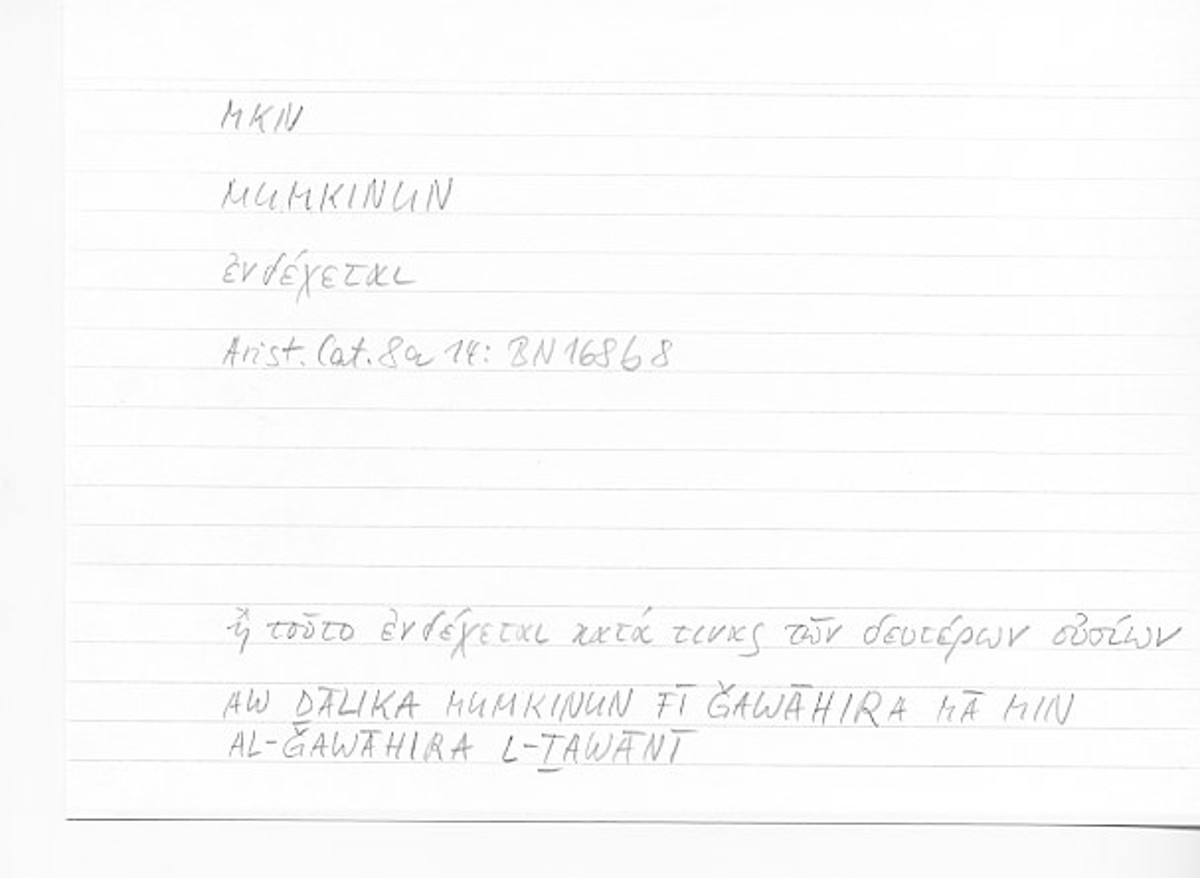 MKN
MUMKINUN
ἐνδέχεται
Arist. Cat. 8a 14: BN 168b8
ἢ τοῦτο ἐνδέχεται κατά τινας τῶν δευτέρων οὐσίων
AW ḎĀLIKA MUMKINUN FĪ ǦAWĀHIRA MĀ MIN
AL-ǦAWĀHIRA L-ṮAWĀNĪ